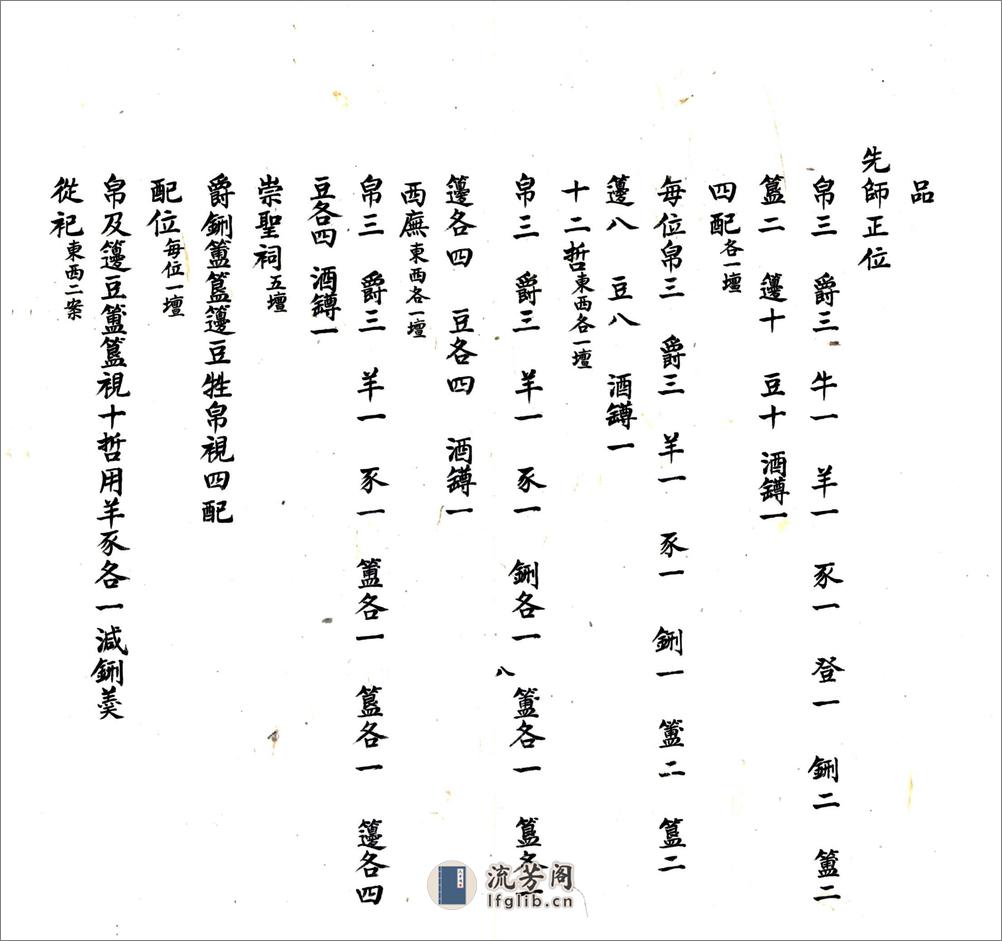 品
先師正位
帛三 爵三 牛一 羊一 豕一 登一 鉶二 簠二
簋二 籩十 豆十 酒罇一
四配各一壇
每位帛三 爵三 羊一 豕一 鉶一 簠二 簋二
籩八 豆八 酒罇一
十二哲東西各一壇
帛三 爵三 羊一 豕一 鉶各一 簠各一 簋各一
籩各四 豆各四 酒罇一
西廡東西各一壇
帛三 爵三 羊一 豕一 簠各一 簋各一 籩各四
豆各四 酒罇一
崇聖祠五壇
爵鉶簠簋籩豆牲帛視四配
配位每位一壇
帛及籩豆簠簋視十哲用羊豕各一減鉶羹
從祀東西二案
八
流芳阁
lfglib.cn